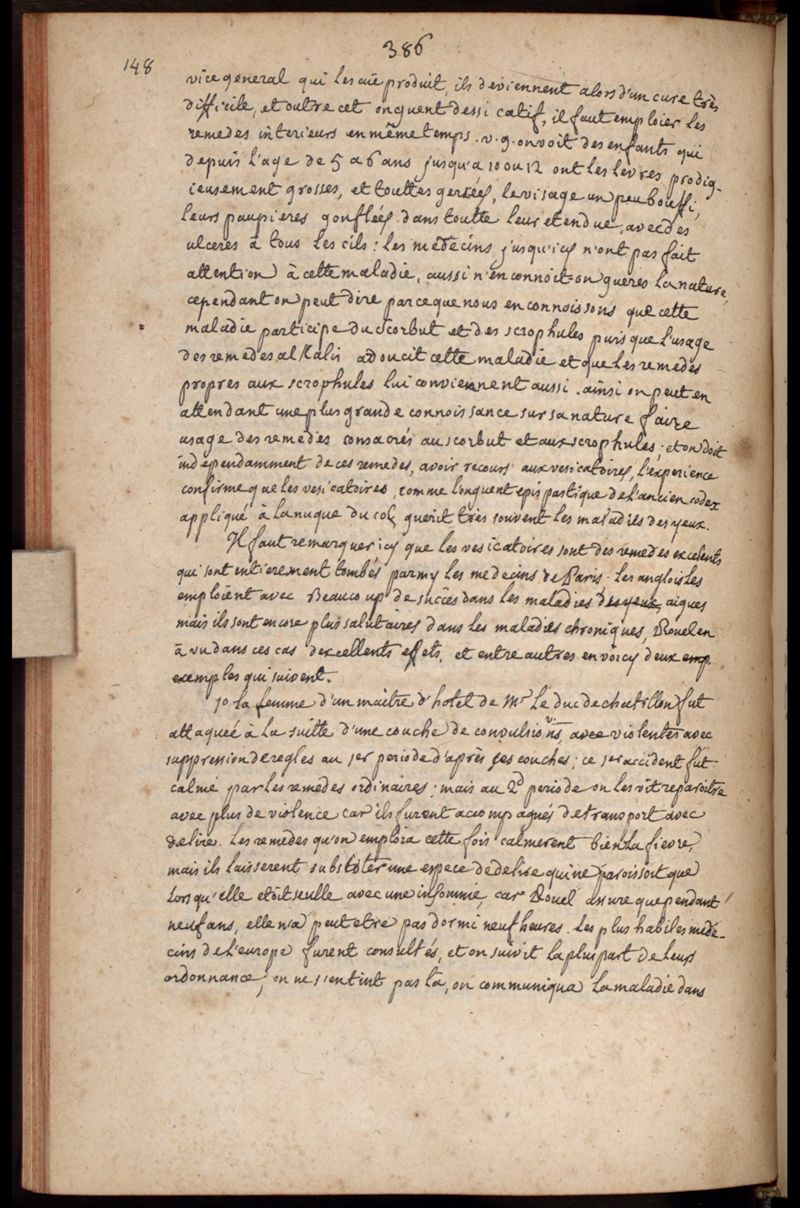 386
148
vice general qui les aïe produit, ils deviennent alors d'un cure très
difficile, et outre cet onguent dessicatif, il faut emploier les
remedes interieurs en même temps. v. g. on voit des enfants qui
depuis l'age de 5 a 6 ans jusqu'a 10 ou 12 ont les lèvres prodig-
ieusement grosses, et touttes gersées, le visage un peu bouffi,
leurs paupieres gonflées dans toutte leur etendue, avec des
ulceres à tous les cils: les medecins jusqu'icy n'ont pas fait
attention à cette maladie, aussi n'en connoit-on gueres la nature,
cependant on peut dire parceque nous en connoissons que cette
maladie participe du scorbut et des scrophules puis que l'usage
des remedes alkalis adoucit cette maladie et que les remedes
propres aux scrophules lui conviennent aussi. ainsi on peut en
attendant une plus grande connoissance sur sa nature faire
usage des remedes consacrés au scorbut et aux scrophules; et on doit
indépendamment de ces remedes, avoir recours aux vesicatoires, l'experience
confirme que les vesicatoires, comme l'onguent epispastique de l'ancien codex
appliqué à la nuque du col, guerit très souvent les maladies des yeux.
Il faut remarquer icy que les vesicatoires sont des remedes excelents
qui sont entierement tombés parmy les medecins de Paris. les anglois les
emploient avec Beaucoup de succès dans les maladies des yeux aigues
mais ils sont encore plus salutaires dans les maladies chroniques, Rouel en
à vu dans ces cas d'excellents effets, et entre autres en voicy deux emp.
exemples qui suivent.
1o la femme d'un maitre d'hotel de Mr. le duc de chatillon fut
attaquée à la suitte d'une couche de convulsions avec violentes avec
suppression de regles au 1er periode d'après ses couches; ce 1er accident fut
calmé par les remedes ordinaires; mais au 2d periode on les vit reparoitre
avec plus de violence car ils furent accompagnés de transport avec
delire. Les remedes qu'on emploia cette fois calmerent bien la fievre,
mais ils laisserent subsister une espece de delire qui ne paroissoit que
lorsqu'elle etoit seulle avec une insomnie, car Rouel assure que pendant
neuf ans, elle n'a peut etre pas dormi neuf heures. Les plus habiles mede-
cins de l'europe furent consultés, et on suivit la plus part de leurs
ordonnance; on ne s'en tint pas là, on communiqua la maladie dans